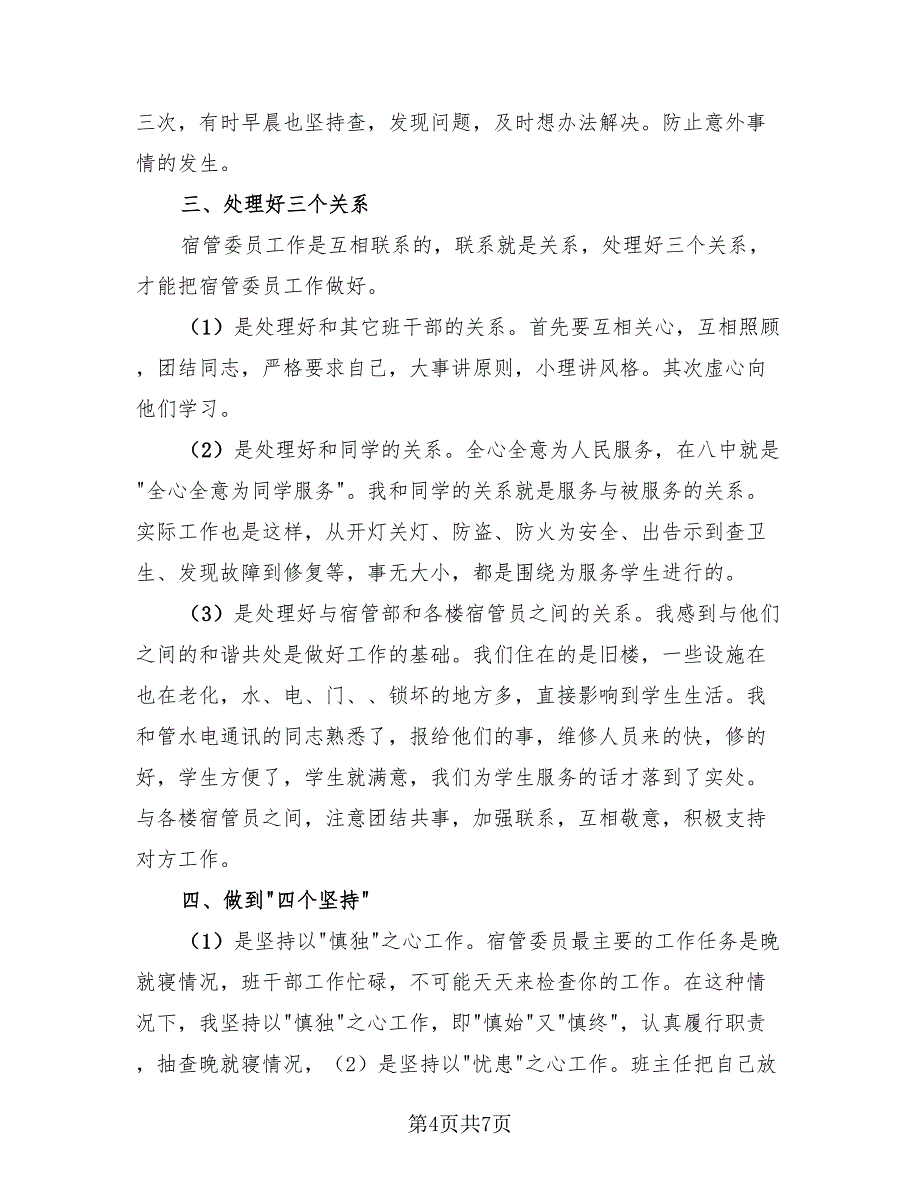 三次，有时早晨也坚持查，发现问题，及时想办法解决。防止意外事
情的发生。
三、处理好三个关系
宿管委员工作是互相联系的，联系就是关系，处理好三个关系，
才能把宿管委员工作做好。
（1）是处理好和其它班干部的关系。首先要互相关心，互相照顾
，团结同志，严格要求自己，大事讲原则，小理讲风格。其次虚心向
他们学习。
（2）是处理好和同学的关系。全心全意为人民服务，在八中就是
"全心全意为同学服务"。我和同学的关系就是服务与被服务的关系。
实际工作也是这样，从开灯关灯、防盗、防火为安全、出告示到查卫
生、发现故障到修复等，事无大小，都是围绕为服务学生进行的。
（3）是处理好与宿管部和各楼宿管员之间的关系。我感到与他们
之间的和谐共处是做好工作的基础。我们住在的是旧楼，一些设施在
也在老化，水、电、门、、锁坏的地方多，直接影响到学生生活。我
和管水电通讯的同志熟悉了，报给他们的事，维修人员来的快，修的
好，学生方便了，学生就满意，我们为学生服务的话才落到了实处。
与各楼宿管员之间，注意团结共事，加强联系，互相敬意，积极支持
对方工作。
四、做到"四个坚持"
（1）是坚持以"慎独"之心工作。宿管委员最主要的工作任务是晚
就寝情况，班干部工作忙碌，不可能天天来检查你的工作。在这种情
况下，我坚持以"慎独"之心工作，即"慎始"又"慎终"，认真履行职责
，抽查晚就寝情况，（2）是坚持以"忧患"之心工作。班主任把自己放
第4页共7页